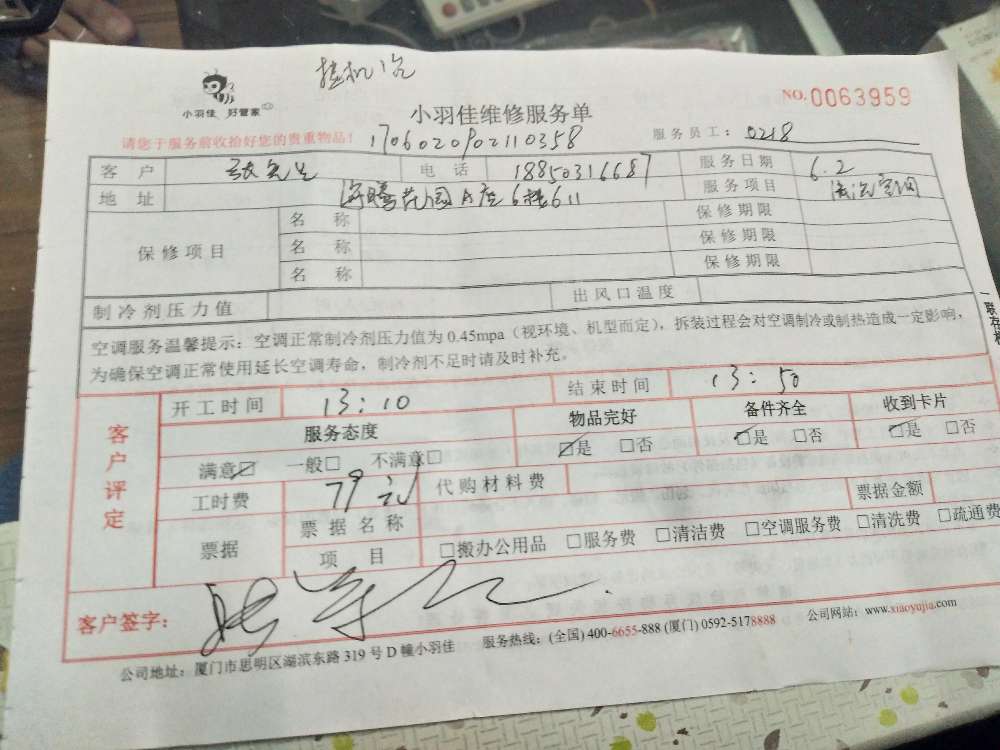 挂机洗
小羽佳 好管家
小羽佳维修服务单
NO.0063959
请您于服务前收拾好您的贵重物品!
1706020902110358
服务员工: 0218
客户 张先生 电话 18850316687 服务日期 6.2
地址 海腾花园A座6楼611 服务项目 清洗空调
保修项目 名称 保修期限
名称 保修期限
名称 保修期限
制冷剂压力值 出风口温度
空调服务温馨提示:空调正常制冷剂压力值为0.45mpa(视环境、机型而定),拆装过程会对空调制冷或制热造成一定影响,
为确保空调正常使用延长空调寿命,制冷剂不足时请及时补充。
客户评定
开工时间 13:10 结束时间 13:50
服务态度 物品完好 备件齐全 收到卡片
满意☑ 一般□ 不满意□ ☑是 □否 ☑是 □否 ☑是 □否
工时费 79元 代购材料费
票据 票据名称 票据金额
项目 □搬办公用品 □服务费 □清洁费 □空调服务费 □清洗费 □疏通费
客户签字:
公司地址:厦门市思明区湖滨东路319号D幢小羽佳 服务热线:(全国)400-6655-888 (厦门) 0592-5178888 公司网站:www.xiaoyujia.com